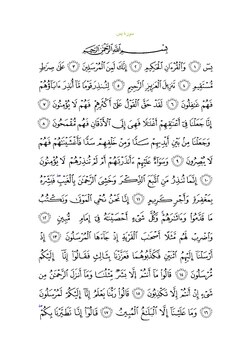 سورة يس
بِسْمِ اللَّهِ الرَّحْمَٰنِ الرَّحِيمِ
يسٓ ١ وَالْقُرْءَانِ الْحَكِيمِ ٢ إِنَّكَ لَمِنَ الْمُرْسَلِينَ ٣ عَلَىٰ صِرَاطٍ
مُّسْتَقِيمٍ ٤ تَنزِيلَ الْعَزِيزِ الرَّحِيمِ ٥ لِتُنذِرَ قَوْمًا مَّا أُنذِرَ ءَابَاؤُهُمْ
فَهُمْ غَافِلُونَ ٦ لَقَدْ حَقَّ الْقَوْلُ عَلَىٰ أَكْثَرِهِمْ فَهُمْ لَا يُؤْمِنُونَ ٧
إِنَّا جَعَلْنَا فِي أَعْنَاقِهِمْ أَغْلَالًا فَهِيَ إِلَى الْأَذْقَانِ فَهُم مُّقْمَحُونَ ٨
وَجَعَلْنَا مِن بَيْنِ أَيْدِيهِمْ سَدًّا وَمِنْ خَلْفِهِمْ سَدًّا فَأَغْشَيْنَاهُمْ فَهُمْ
لَا يُبْصِرُونَ ٩ وَسَوَاءٌ عَلَيْهِمْ ءَأَنذَرْتَهُمْ أَمْ لَمْ تُنذِرْهُمْ لَا يُؤْمِنُونَ
١٠ إِنَّمَا تُنذِرُ مَنِ اتَّبَعَ الذِّكْرَ وَخَشِيَ الرَّحْمَٰنَ بِالْغَيْبِ فَبَشِّرْهُ
بِمَغْفِرَةٍ وَأَجْرٍ كَرِيمٍ ١١ إِنَّا نَحْنُ نُحْيِ الْمَوْتَىٰ وَنَكْتُبُ
مَا قَدَّمُوا وَءَاثَارَهُمْ وَكُلَّ شَيْءٍ أَحْصَيْنَاهُ فِي إِمَامٍ مُّبِينٍ ١٢
وَاضْرِبْ لَهُم مَّثَلًا أَصْحَابَ الْقَرْيَةِ إِذْ جَاءَهَا الْمُرْسَلُونَ ١٣ إِذْ
أَرْسَلْنَا إِلَيْهِمُ اثْنَيْنِ فَكَذَّبُوهُمَا فَعَزَّزْنَا بِثَالِثٍ فَقَالُوا إِنَّا إِلَيْكُم
مُّرْسَلُونَ ١٤ قَالُوا مَا أَنتُمْ إِلَّا بَشَرٌ مِّثْلُنَا وَمَا أَنزَلَ الرَّحْمَٰنُ مِن
شَيْءٍ إِنْ أَنتُمْ إِلَّا تَكْذِبُونَ ١٥ قَالُوا رَبُّنَا يَعْلَمُ إِنَّا إِلَيْكُمْ لَمُرْسَلُونَ
١٦ وَمَا عَلَيْنَا إِلَّا الْبَلَاغُ الْمُبِينُ ١٧ قَالُوا إِنَّا تَطَيَّرْنَا بِكُمْ